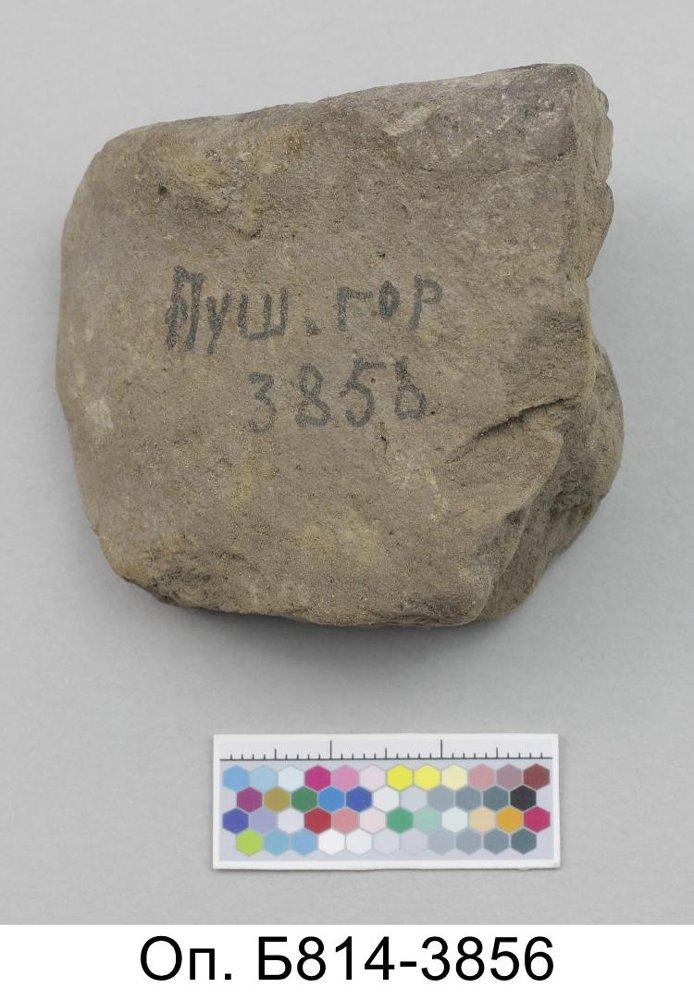 Пуш. гор
3856
Оп. Б814-3856